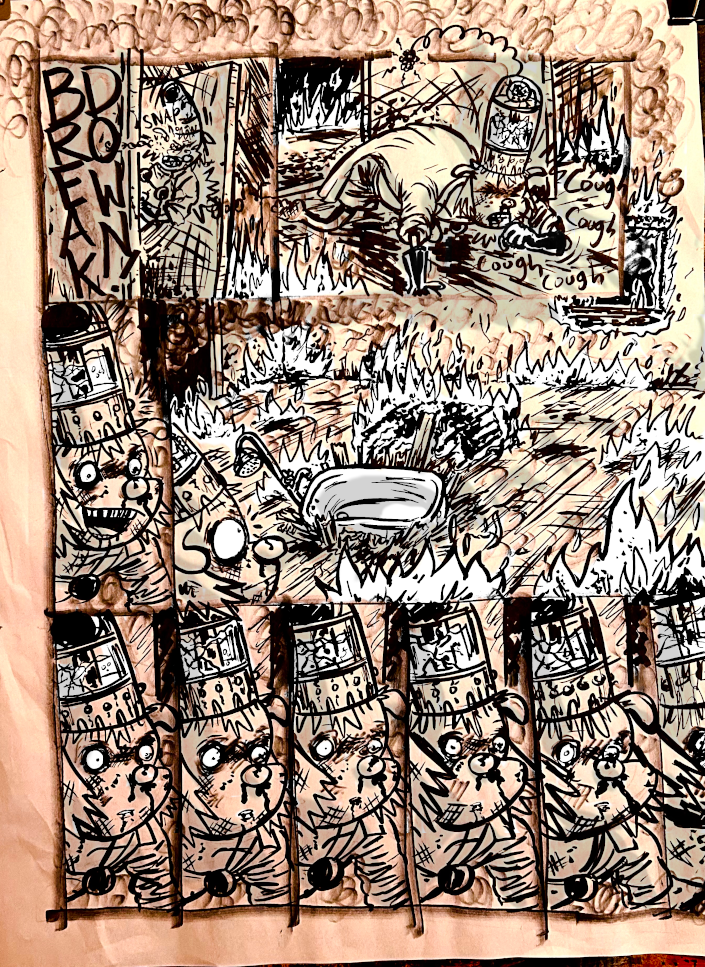 BREAK
DOWN!
SNAP
Cough
Cough
Cough Cough